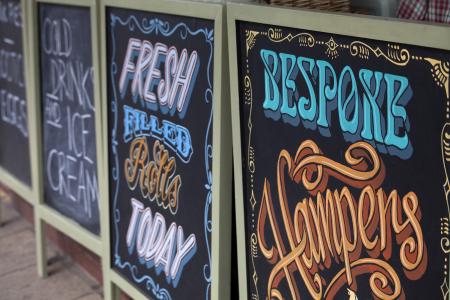 COLD
DRINKS
AND
ICE
CREAM
FRESH
FILLED
Rolls
TODAY
BESPOKE
Hampers